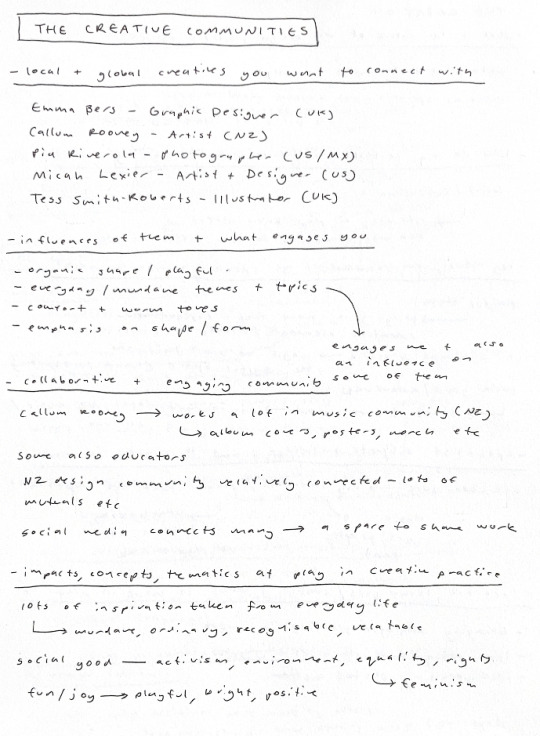 THE CREATIVE COMMUNITIES
- local + global creatives you want to connect with
Emma Bers - Graphic Designer (UK)
Callum Rooney - Artist (NZ)
Pia Riverola - Photographer (US/MX)
Micah Lexier - Artist + Designer (US)
Tess Smith-Roberts - Illustrator (UK)
- influences of them + what engages you
- organic shape / playful
- everyday / mundane themes + topics
- comfort + warm tones
- emphasis on shape / form
engages me + also
an influence on
some of them
- collaborative + engaging community
Callum Rooney → works a lot in music community (NZ)
↳ album covers, posters, merch etc
some also educators
NZ design community relatively connected - lots of
mutuals etc
social media connects many → a space to share work
- impacts, concepts, thematics at play in creative practice
lots of inspiration taken from everyday life
↳ mundane, ordinary, recognisable, relatable
social good — activism, environment, equality, rights
↳ feminism
fun/joy → playful, bright, positive